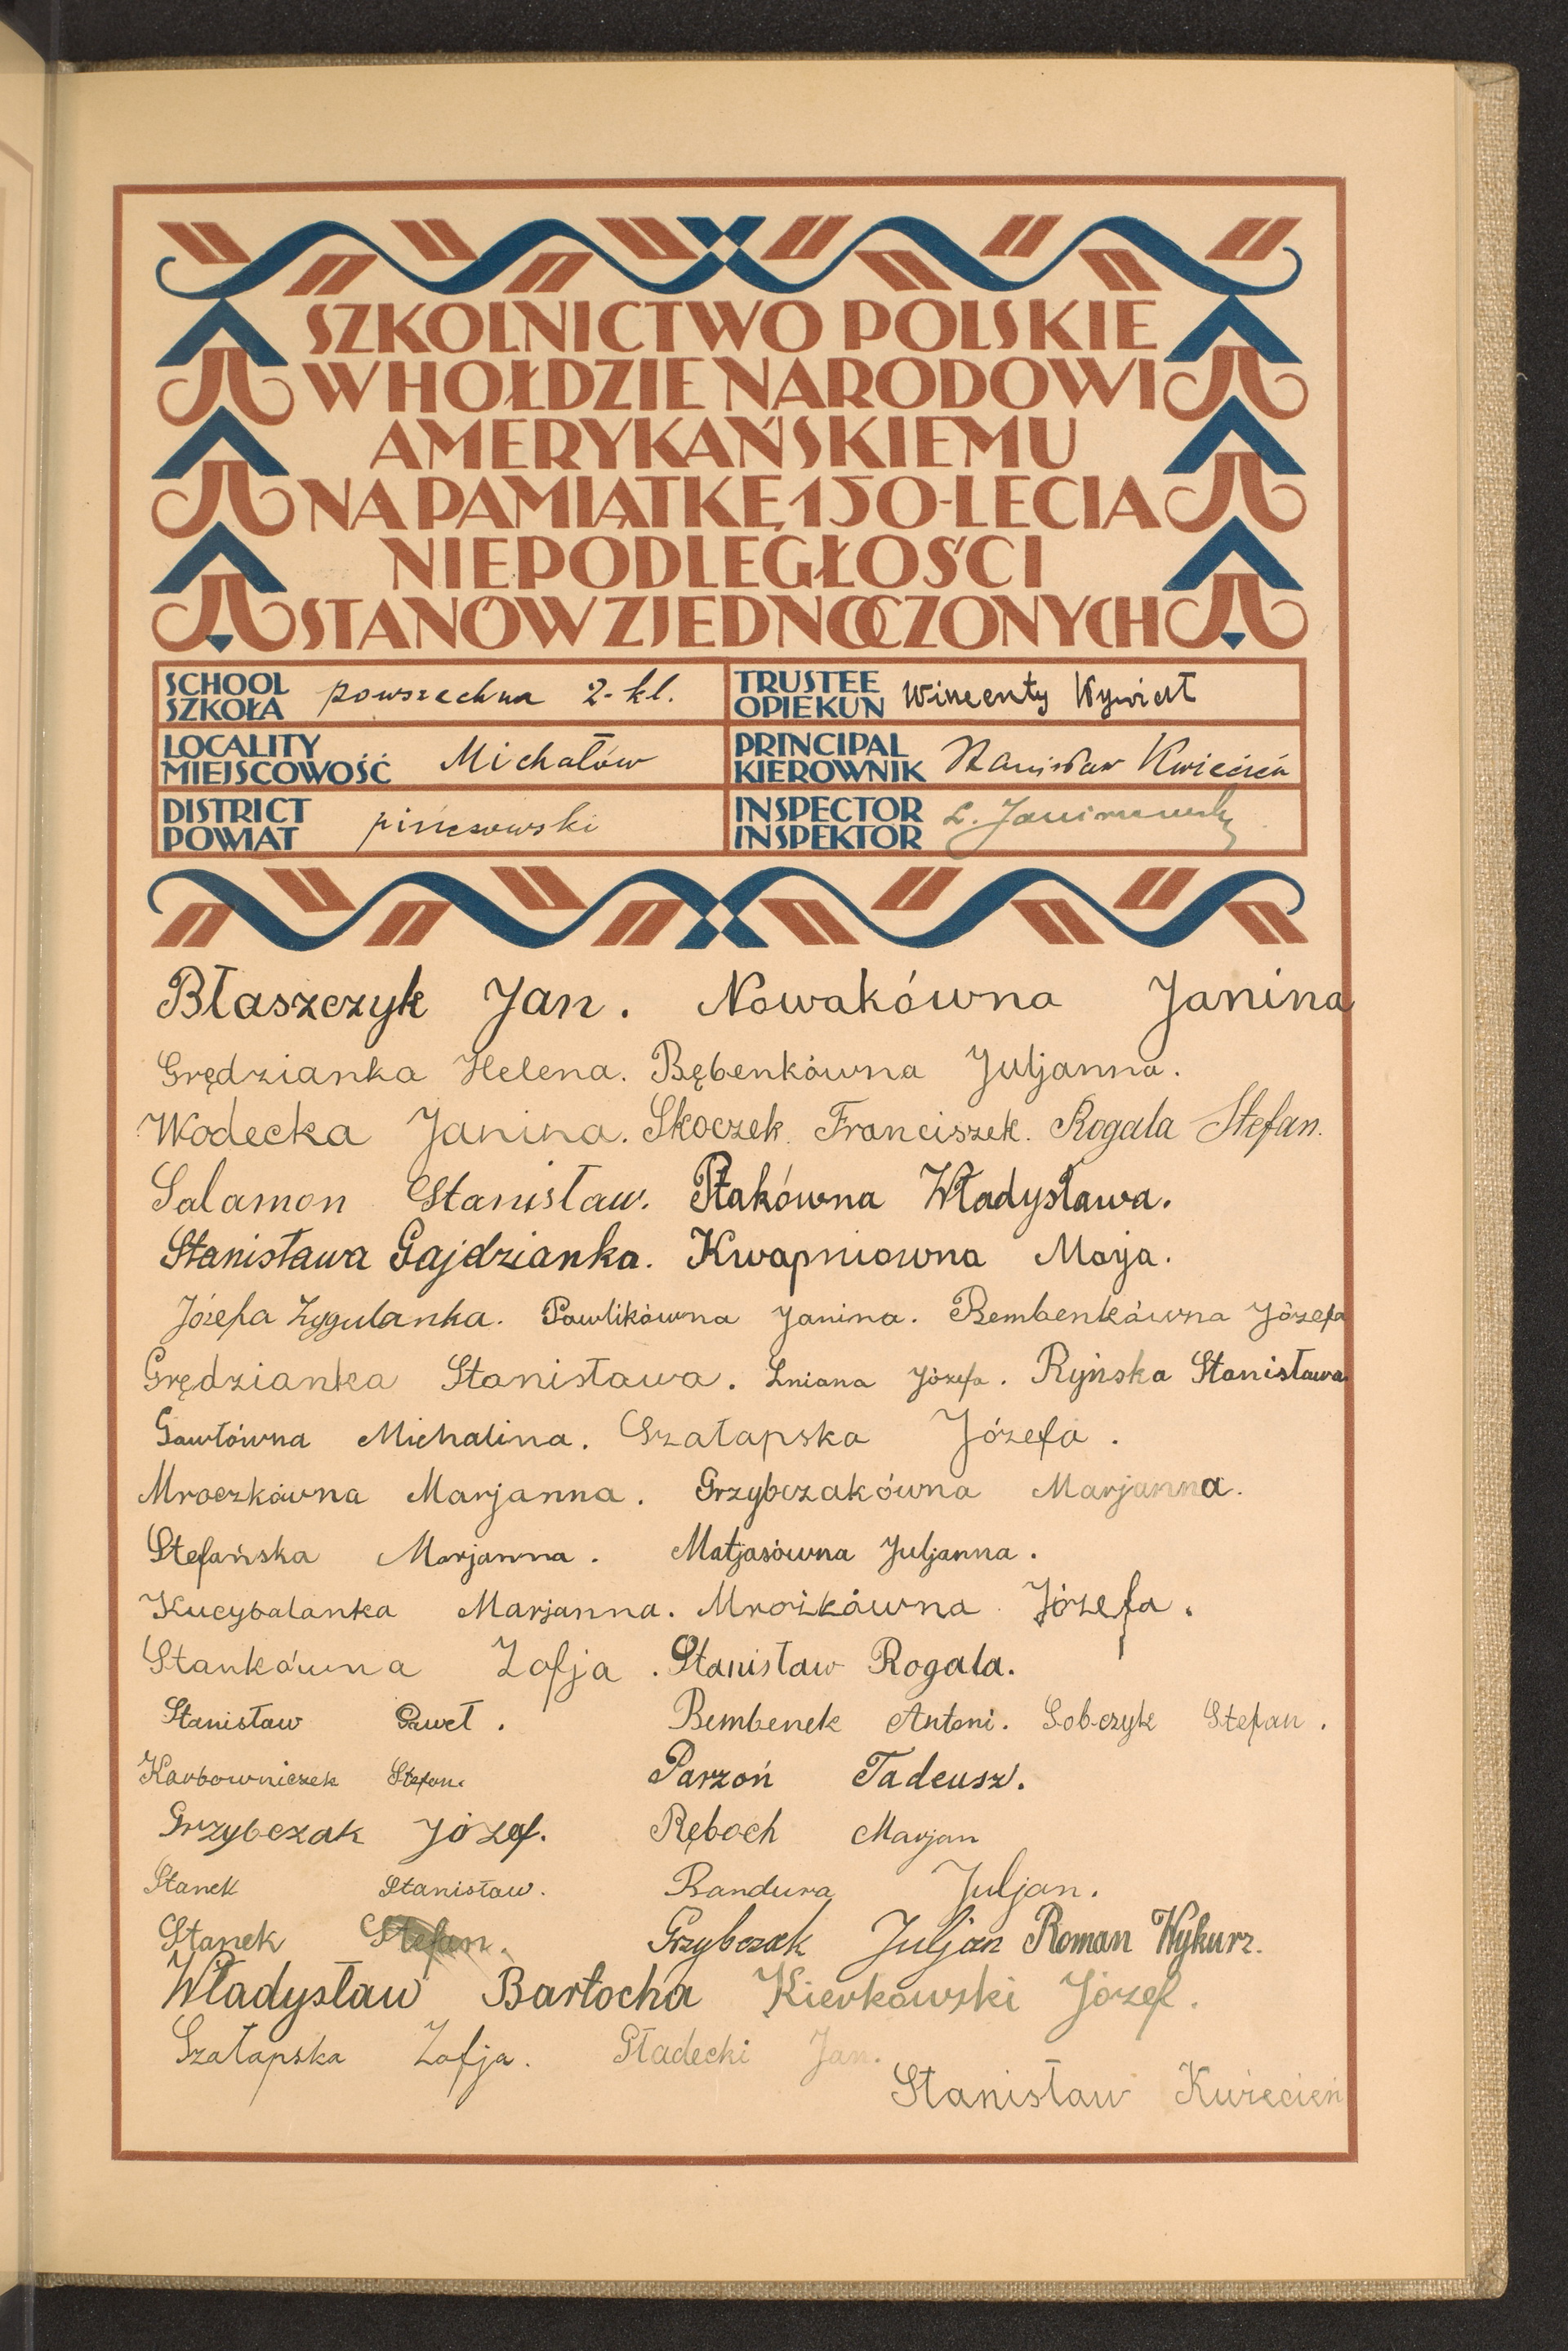 SZKOLNICTWO POLSKIE
W HOŁDZIE NARODOWI
AMERYKAŃSKIEMU
NA PAMIĄTKĘ 150-LECIA
NIEPODLEGŁOŚCI
STANÓW ZJEDNOCZONYCH
SCHOOL SZKOŁA powszechna 2-kl.
TRUSTEE OPIEKUN Wincenty
LOCALITY MIEJSCOWOŚĆ Michałów
PRINCIPAL KIEROWNIK Stanisław Kwiecień
DISTRICT POWIAT pińczowski
INSPECTOR INSPEKTOR
Błaszczyk Jan. Nowakówna Janina
Grędzianka Helena. Bębenkówna Juljanna.
Wodecka Janina. Skoczek Franciszek. Rogala Stefan.
Salamon Stanisław. Ptakówna Władysława.
Stanisława Gajdzianka. Kwapniowna Marja.
Józefa Zygulanka. Pawlikówna Janina. Bembenkówna Józefa
Grędzianka Stanisława. Lniana Józefa. Ryńska Stanisława
Gawłówna Michalina. Szałapska Józefa.
Mroczkówna Marjanna. Grzybczakówna Marjanna.
Stefańska Marjanna. Matjasówna Juljanna.
Kucybalanka Marjanna. Mrożkówna Józefa.
Stankówna Zofja. Stanisław Rogala.
Stanisław Gaweł. Bembenek Antoni. Sobczyk Stefan.
Karbowniczek Stefan. Parzoń Tadeusz.
Grzybczak Józef. Ręboch Marjan
Stanek Stanisław. Bandura Juljan.
Stanek Stefan. Grzybczak Juljan Roman Wykurz.
Władysław Bartocha Kierkowski Józef.
Szałapska Zofja. Gładecki Jan.
Stanisław Kwiecień